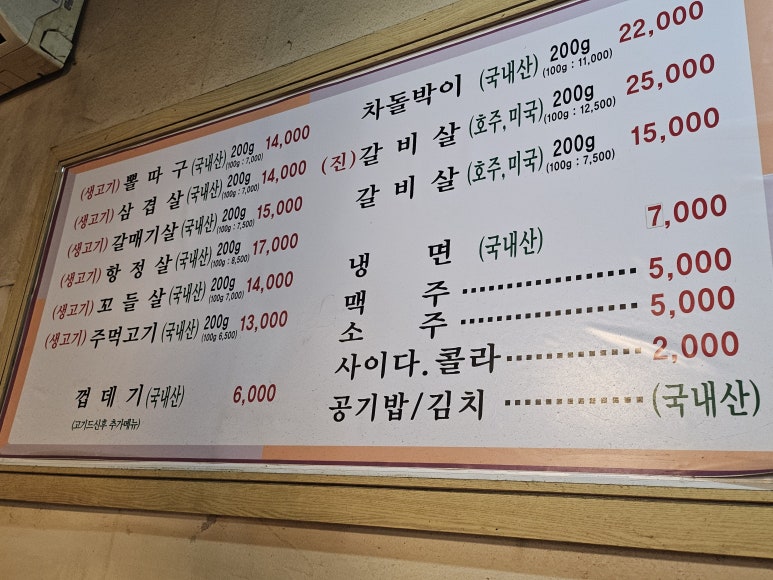 (생고기) 뽈 따 구 (국내산) 200g (100g : 7,000) 14,000
(생고기) 삼 겹 살 (국내산) 200g (100g : 7,000) 14,000
(생고기) 갈매기살 (국내산) 200g (100g : 7,500) 15,000
(생고기) 항 정 살 (국내산) 200g (100g : 8,500) 17,000
(생고기) 꼬 들 살 (국내산) 200g (100g 7,000) 14,000
(생고기) 주먹고기 (국내산) 200g (100g 6,500) 13,000
껍 데 기 (국내산) 6,000
(고기드신후 추가메뉴)
차돌박이 (국내산) 200g (100g : 11,000) 22,000
(진) 갈 비 살 (호주,미국) 200g (100g : 12,500) 25,000
갈 비 살 (호주,미국) 200g (100g : 7,500) 15,000
냉 면 (국내산) 7,000
맥 주 5,000
소 주 5,000
사이다.콜라 2,000
공기밥/김치 (국내산)